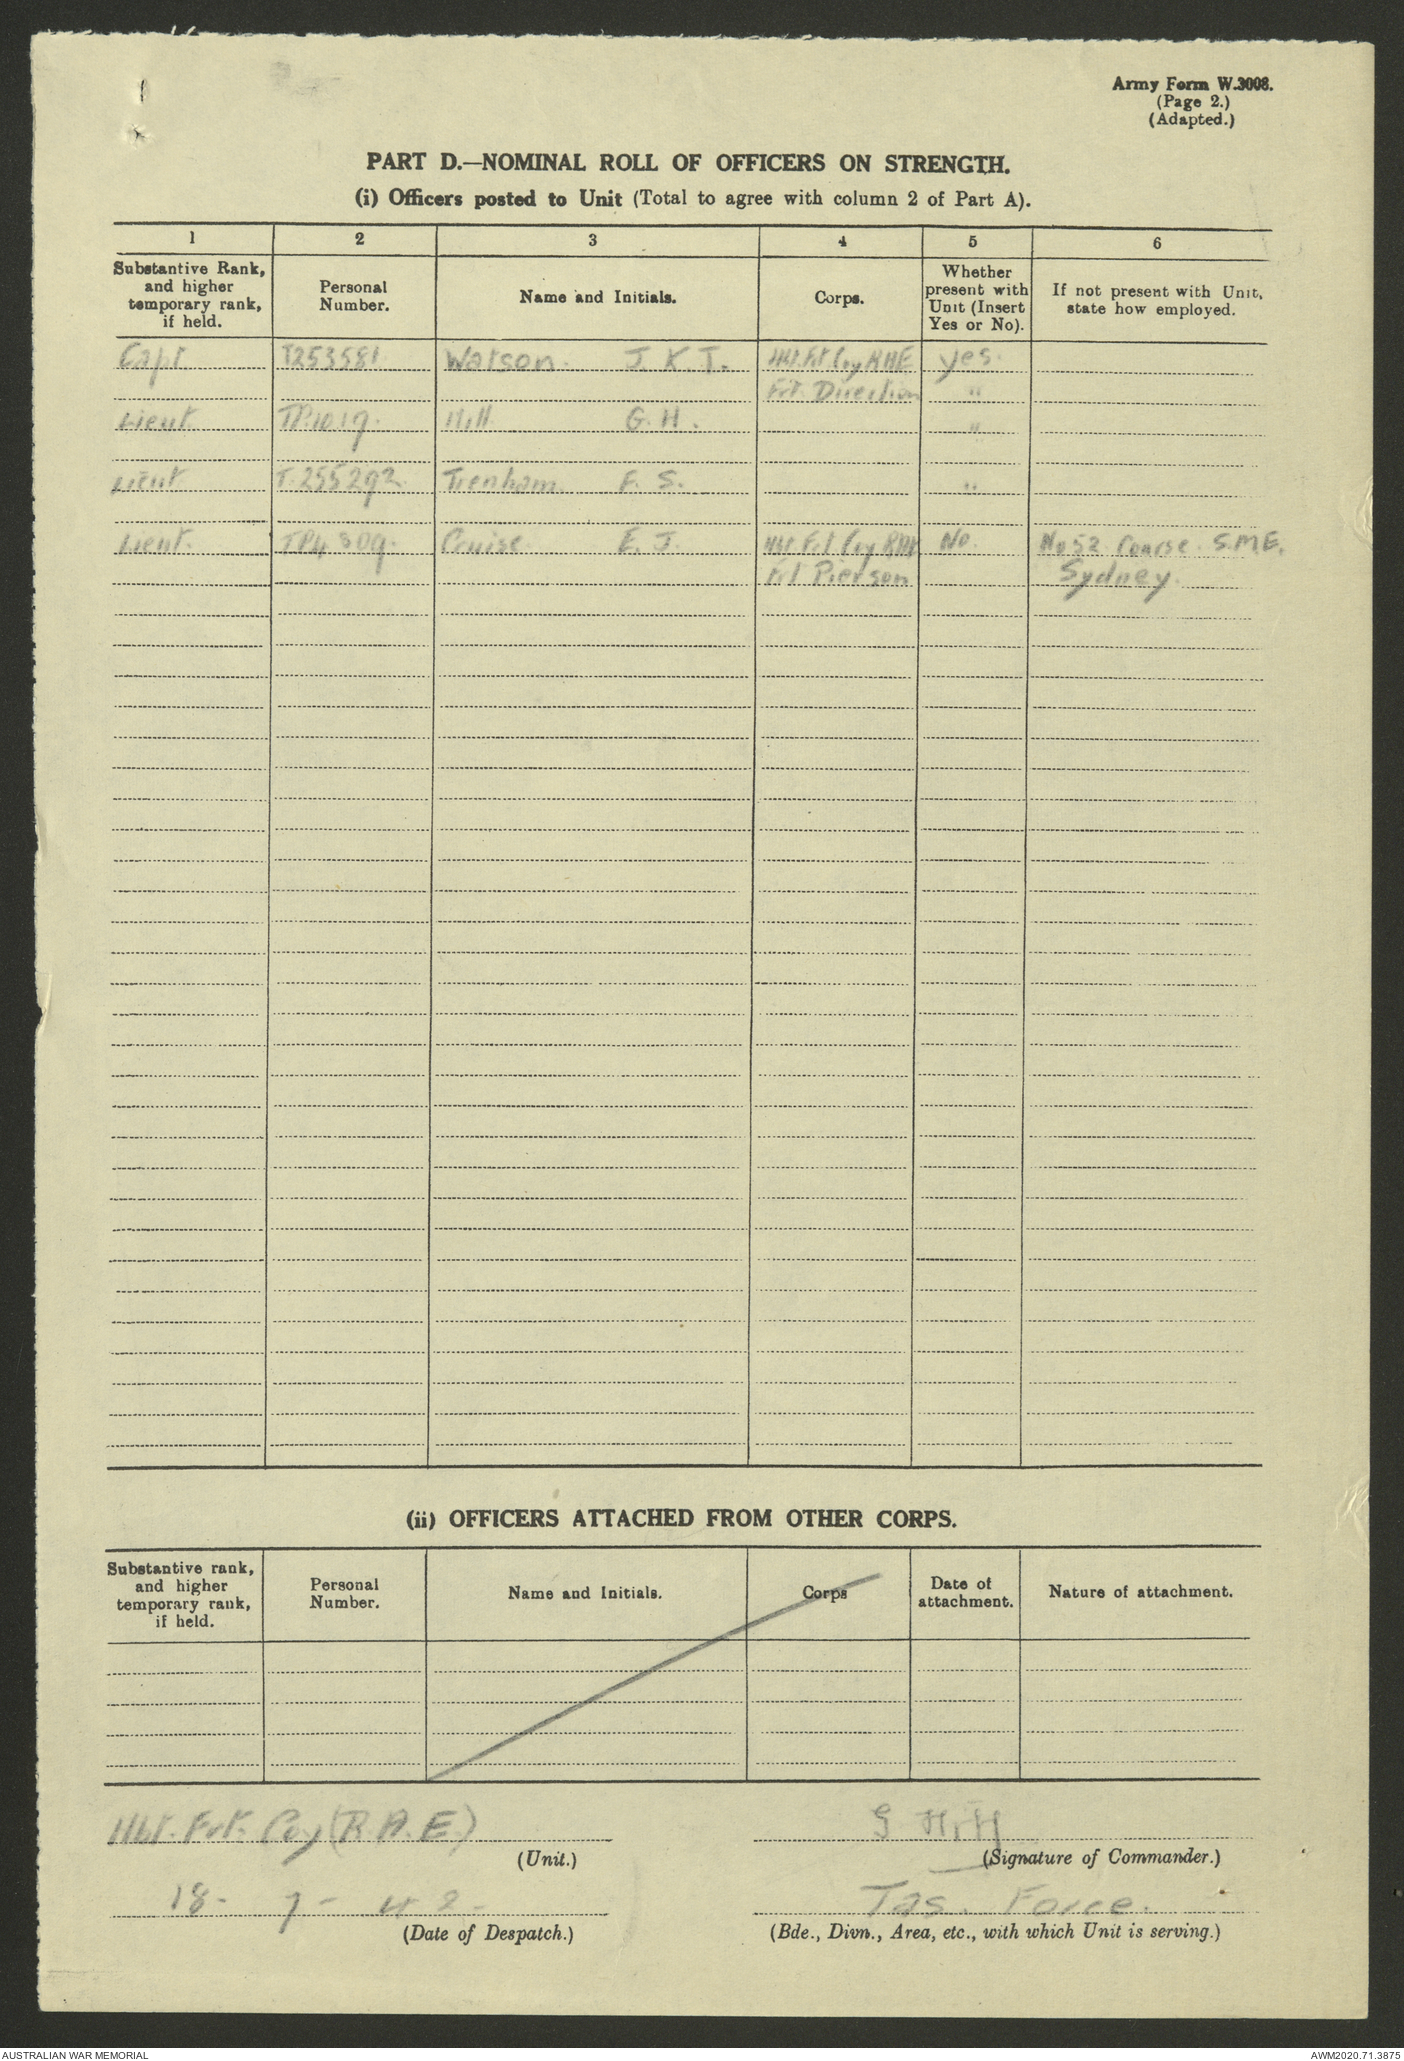 Army Form W.3008.
(Page 2.)
(Adapted.)
PART D.—NOMINAL ROLL OF OFFICERS ON STRENGTH.
(i) Officers posted to Unit (Total to agree with column 2 of Part A).
1 2 3 4 5 6
Substantive Rank, and higher temporary rank, if held.
Personal Number.
Name and Initials.
Corps.
Whether present with Unit (Insert Yes or No).
If not present with Unit, state how employed.
Capt. T253581 Watson. J. K. T. Hbt. Frt. Coy RAE yes.
Frt. Direction "
Lieut. TP1017. Hill. G. H. "
Lieut T.255292 Trenham. F. S. "
Lieut. TP4309. Cruise. E. J. Hbt. Frt. Coy RAE No. No 52. Course. S.M.E.
Frt Pierson Sydney.
(ii) OFFICERS ATTACHED FROM OTHER CORPS.
Substantive rank, and higher temporary rank, if held.
Personal Number.
Name and Initials.
Corps
Date of attachment.
Nature of attachment.
Hbt. Frt. Coy (R.A.E.) G Hill
(Unit.) (Signature of Commander.)
18- 7- 42- Tas. Force.
(Date of Despatch.) (Bde., Divn., Area, etc., with which Unit is serving.)
AUSTRALIAN WAR MEMORIAL AWM2020.71.3875